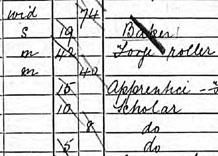 wid 74
s 19 Baker
m 42 Forge roller
m 40
15 Apprentice
10 Scholar
8 do
5 do